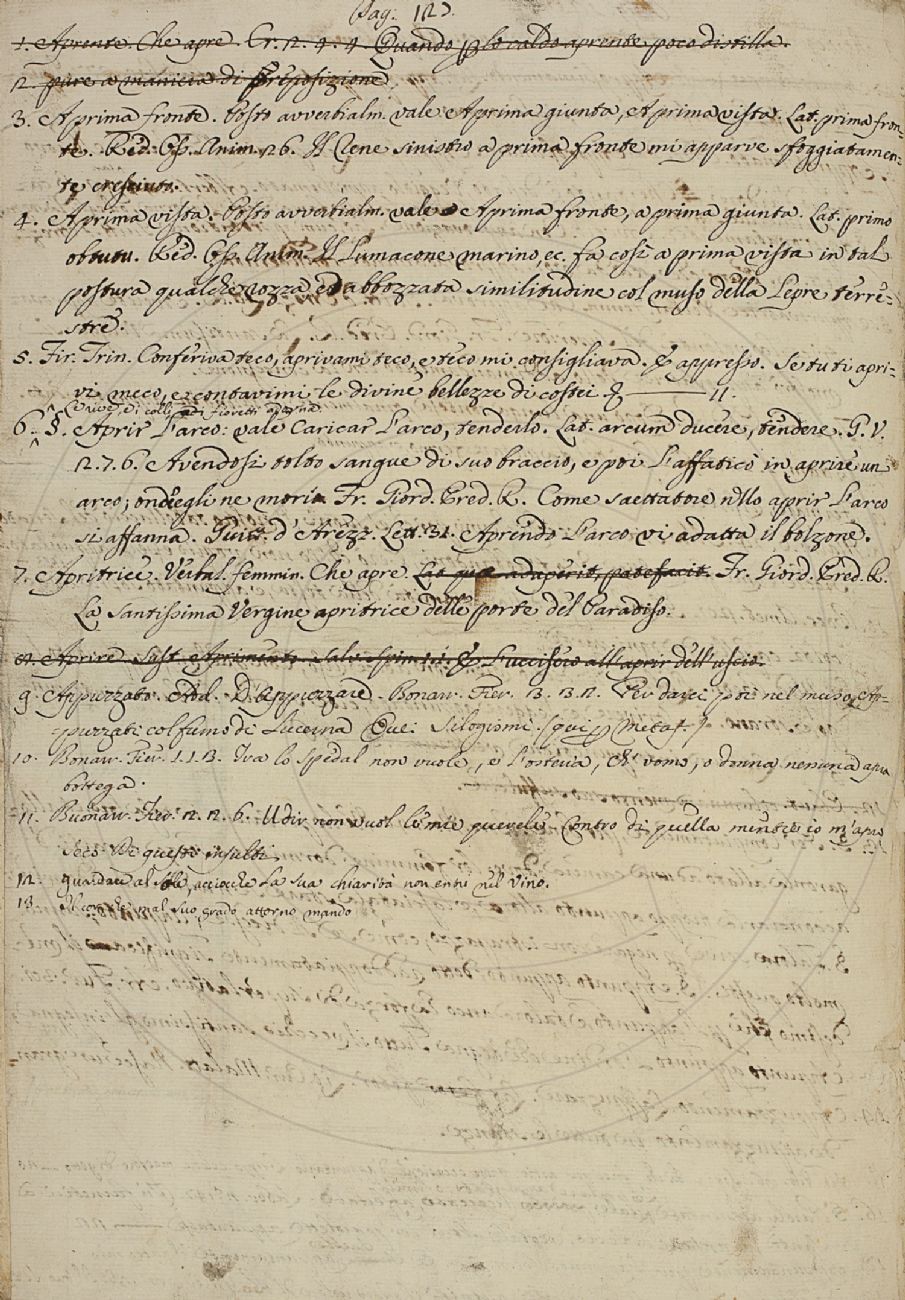 Pag. 123.
1. Aprente. Che apre. Cr. 2. 4. 4. Quando p lo caldo aprente poco distilla.
2. pure a maniera di Preposizione
3. A prima fronte. Posto avverbialm. vale A prima giunta, A prima vista. Lat. prima fron-
te. Red. Oss. Anim. 26. Il Rene sinistro a prima fronte mi apparve sfoggiatamen-
te cresciuto.
4. A prima vista. Posto avverbialm. vale A prima fronte, a prima giunta. Lat. primo
obtutu. Red. Oss. Anim. Il Lumacone marino, ec. fa così a prima vista in tal
postura qualche rozza, ed abbozzata similitudine col muso della Lepre terre-
stre.
5. Fir. Trin. Conferiva teco, aprivami teco, e teco mi consigliava. E appresso. Se tu ti apri-
vi meco, e contavimi le divine bellezze di costei — 11.
di colli di fioretti adorna
6. §. Aprir l'arco: vale Caricar l'arco, tenderlo. Lat. arcum ducere, tendere. G. V.
12. 7. 6. Avendosi tolto sangue di suo braccio, e poi l'affaticò in aprire un
arco, ond'egli ne morìo. Fr. Giord. Pred. R. Come saettatore nello aprir l'arco
si affanna. Guitt. d'Arezz. Lett. 31. Aprendo l'arco vi adatta il bolzone.
7. Apritrice. Verbal. femmin. Che apre. Lat. quæ adaperit, patefacit. Fr. Giord. Pred. R.
La Santissima Vergine apritrice delle porte del Paradiso.
8. Aprire Sust. Aprimento. Salv. Spin. L'uccisero all'aprir dell'uscio.
9. Appuzzato. Add. D'Appuzzare. Bonarr. Fier. 3. 3. 2. Per darci poi nel muso Ap-
puzzati col fumo di Lucerna Due Silogismi. (qui p Metaf.)
10. Bonarr. Fier. 1. 1. 3. Tra lo spedal non vuole, e l'osteria, Ch' uomo, o donna nessuna apra
bottega.
11. Buonarr. Fier. 2. 2. 6. Udir non vuol le mie querele Contro di quella mentre io m'apro
Seco di questi insulti.
12. guardare al Sole, acciocche la sua chiarità non entri nel vino.
13. mal suo grado attorno mando